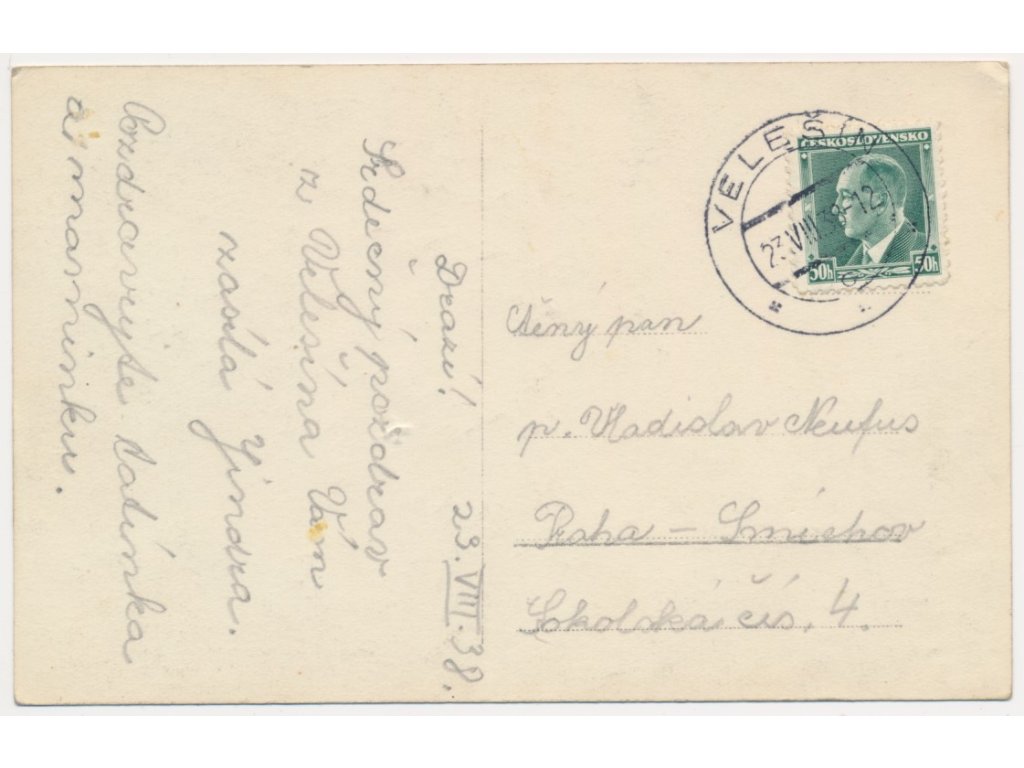 Drazí! 23.VIII.38.
Srdečný pozdrav
z Velešína Vám
zasílá Jindra.
Pozdravujte tatínka
a maminku.
VELEŠÍN
23.VIII.38-12
ČESKOSLOVENSKO
50h 50h
Ctěný pan
p. Vladislav Neufus
Praha – Smíchov
Sokolská čís. 4.